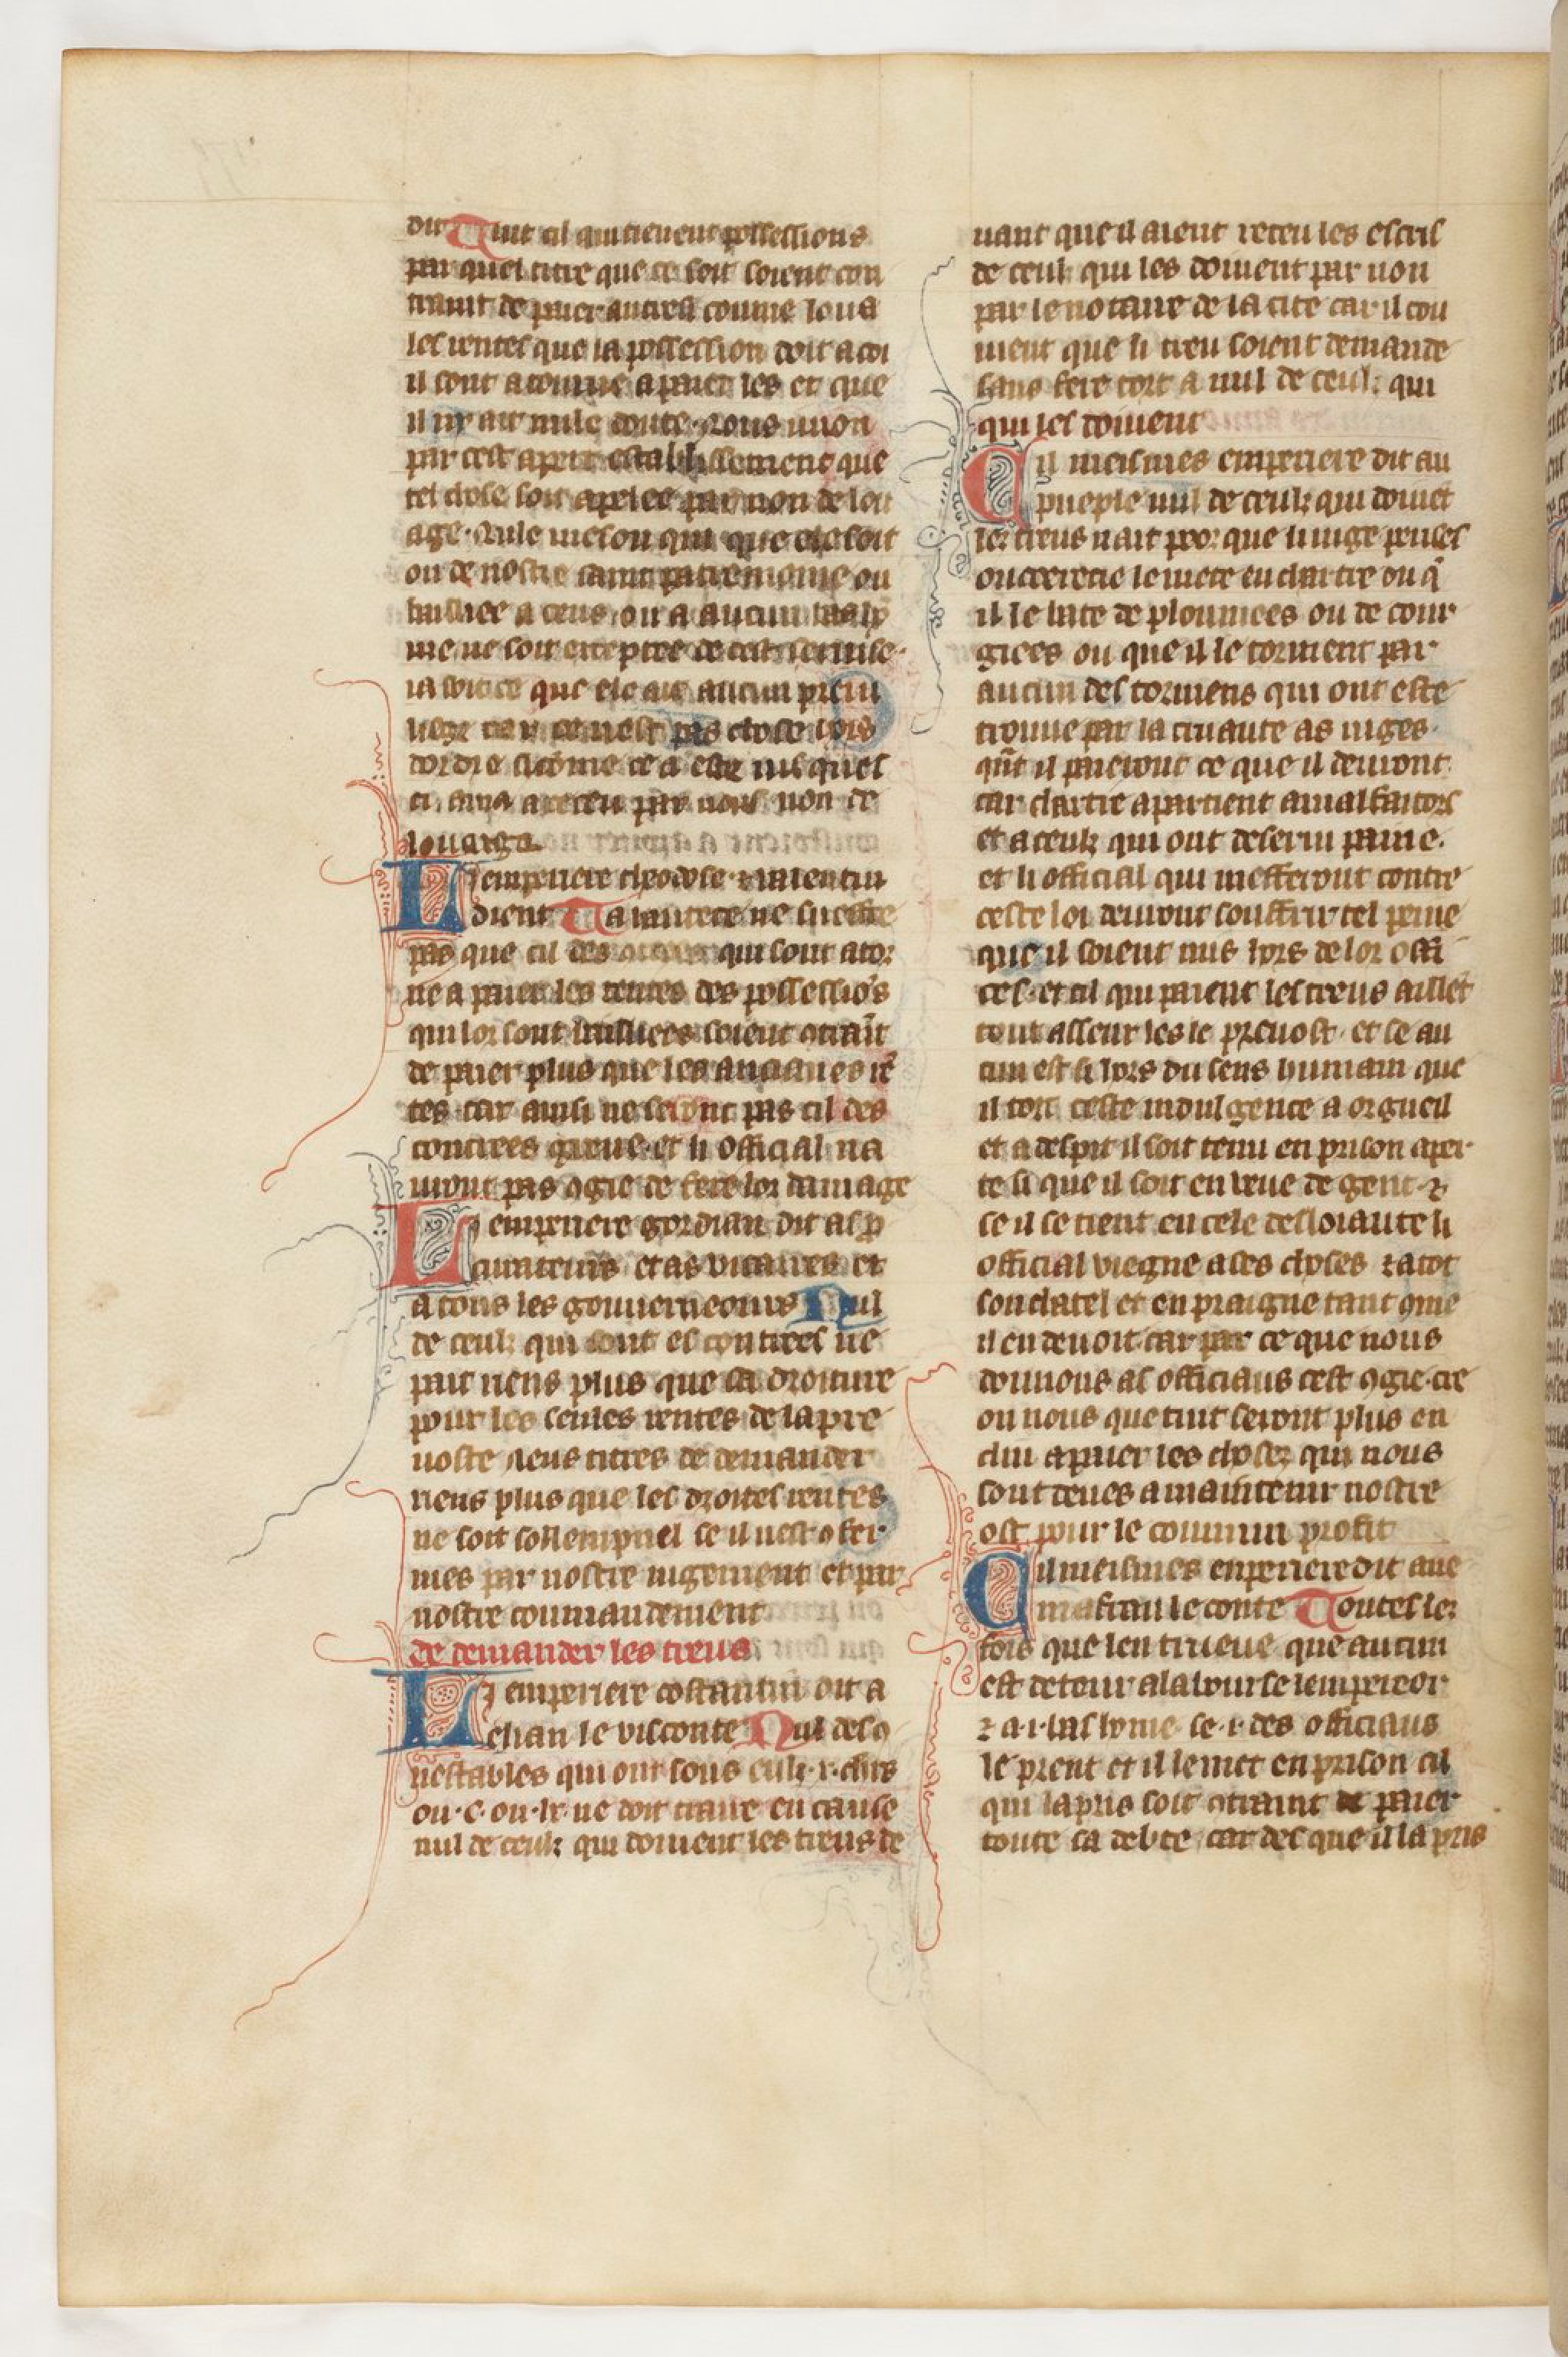 dit Tuit cil qui tienent possessions
par quel titre que ce soit soient con
traint de paier autresi comme lous
les rentes que la possession doit a coi
il sont atourne a paier les et que
il ni ait nule doute nous uuon
par cest apert establissement que
tel chose soit apelee par non de lou
age. Nule meson qui que ele soit
ou de nostre saint patremoine ou
bailliee a ceus ou a aucun
me ne soit exceptee de cest seruise.
ia soit ce que ele ait aucun priui
liege car ce nest pas chose hors
dordre si come ce a este iusques
ci ainz a receu par nous non de
louaige.
Li emperiere theodose ⁊ valentin
dient Ta iautece ne sueffre
pas que cil des qui sont ator
ne a paier les rentes des possessiõs
qui lor sont bailliees soient ꝯtraĩt
de paier plus que les anciaines rẽ
tes car ainsi ne seront pas cil des
contrees greue. et li official na
uront pas ꝯgie de fere lor damage
Li emperiere gordian dit as ꝑ
curateurs et as vicaires et
a tous les gouuerneours Nul
de ceulz qui sont es contrees ne
pait riens plus que sa droiture
pour les seules rentes de la pre
uoste nens titres de demander
riens plus que les droites rentes
ne soit sollempnel se il nest ꝯfer
mes par nostre iugement et par
nostre coumandement
de demander les treus
Li emperiere costantin dit a
elian le visconte Nul des ꝯ
nestables qui ont sous eulz .x. chrs
ou .c. ou .lx. ne doit traire en cause
nul de ceulz qui doiuent les treus de
uant que il aient receu les escris
de ceulz qui les doiuent par non
par le notaire de la cite car il cou
uient que li treu soient demande
sans fere tort a nul de ceulz qui
qui les doiuent
Cil meismes emperiere dit au
pueple nul de ceulz qui doiuẽt
les treus nait peor que li iuge peruers
ou correcie le mete en chartre ou q̃
il le bate de ploumees ou de cour
giees ou que il le torment par
aucun des tormens qui ont este
trouue par la cruaute as iuges.
qñt il paieront ce que il deuront
car chartre apartient a malfaitors
et a ceulz qui ont deserui paine.
et li official qui mefferont contre
ceste loi deuront souffrir tel peine
que il soient mis hors de lor offi
ces. et cil qui paient les treus aillẽt
tout asseur les le preuost. et se au
cun est si hors du sens humain que
il tort ceste indulgence a orgueil
et a despit il soit tenu en prison aper
te si que il soit en veue de gent. ⁊
se il se tient en cele desloiaute li
official viegne a ses choses ⁊ a tot
son chatel et en praigne tant ꝯme
il en deuoit. car par ce que nous
donnons as officiaus cest ꝯgie. cre
on nous que tuit seront plus en
clin a paier les choses qui nous
sont deues a maintenir nostre
ost pour le commun profit
Cil meismes enperiere dit aue
mafran le conte Toutes les
fois que len trueue que aucun
est detteur a la bourse lempereor
⁊ a .i. las home. se .i. des officiaus
le prent et il le met en prison cil
qui la pris soit ꝯtraint de paier
toute sa debte, car des que il la pris